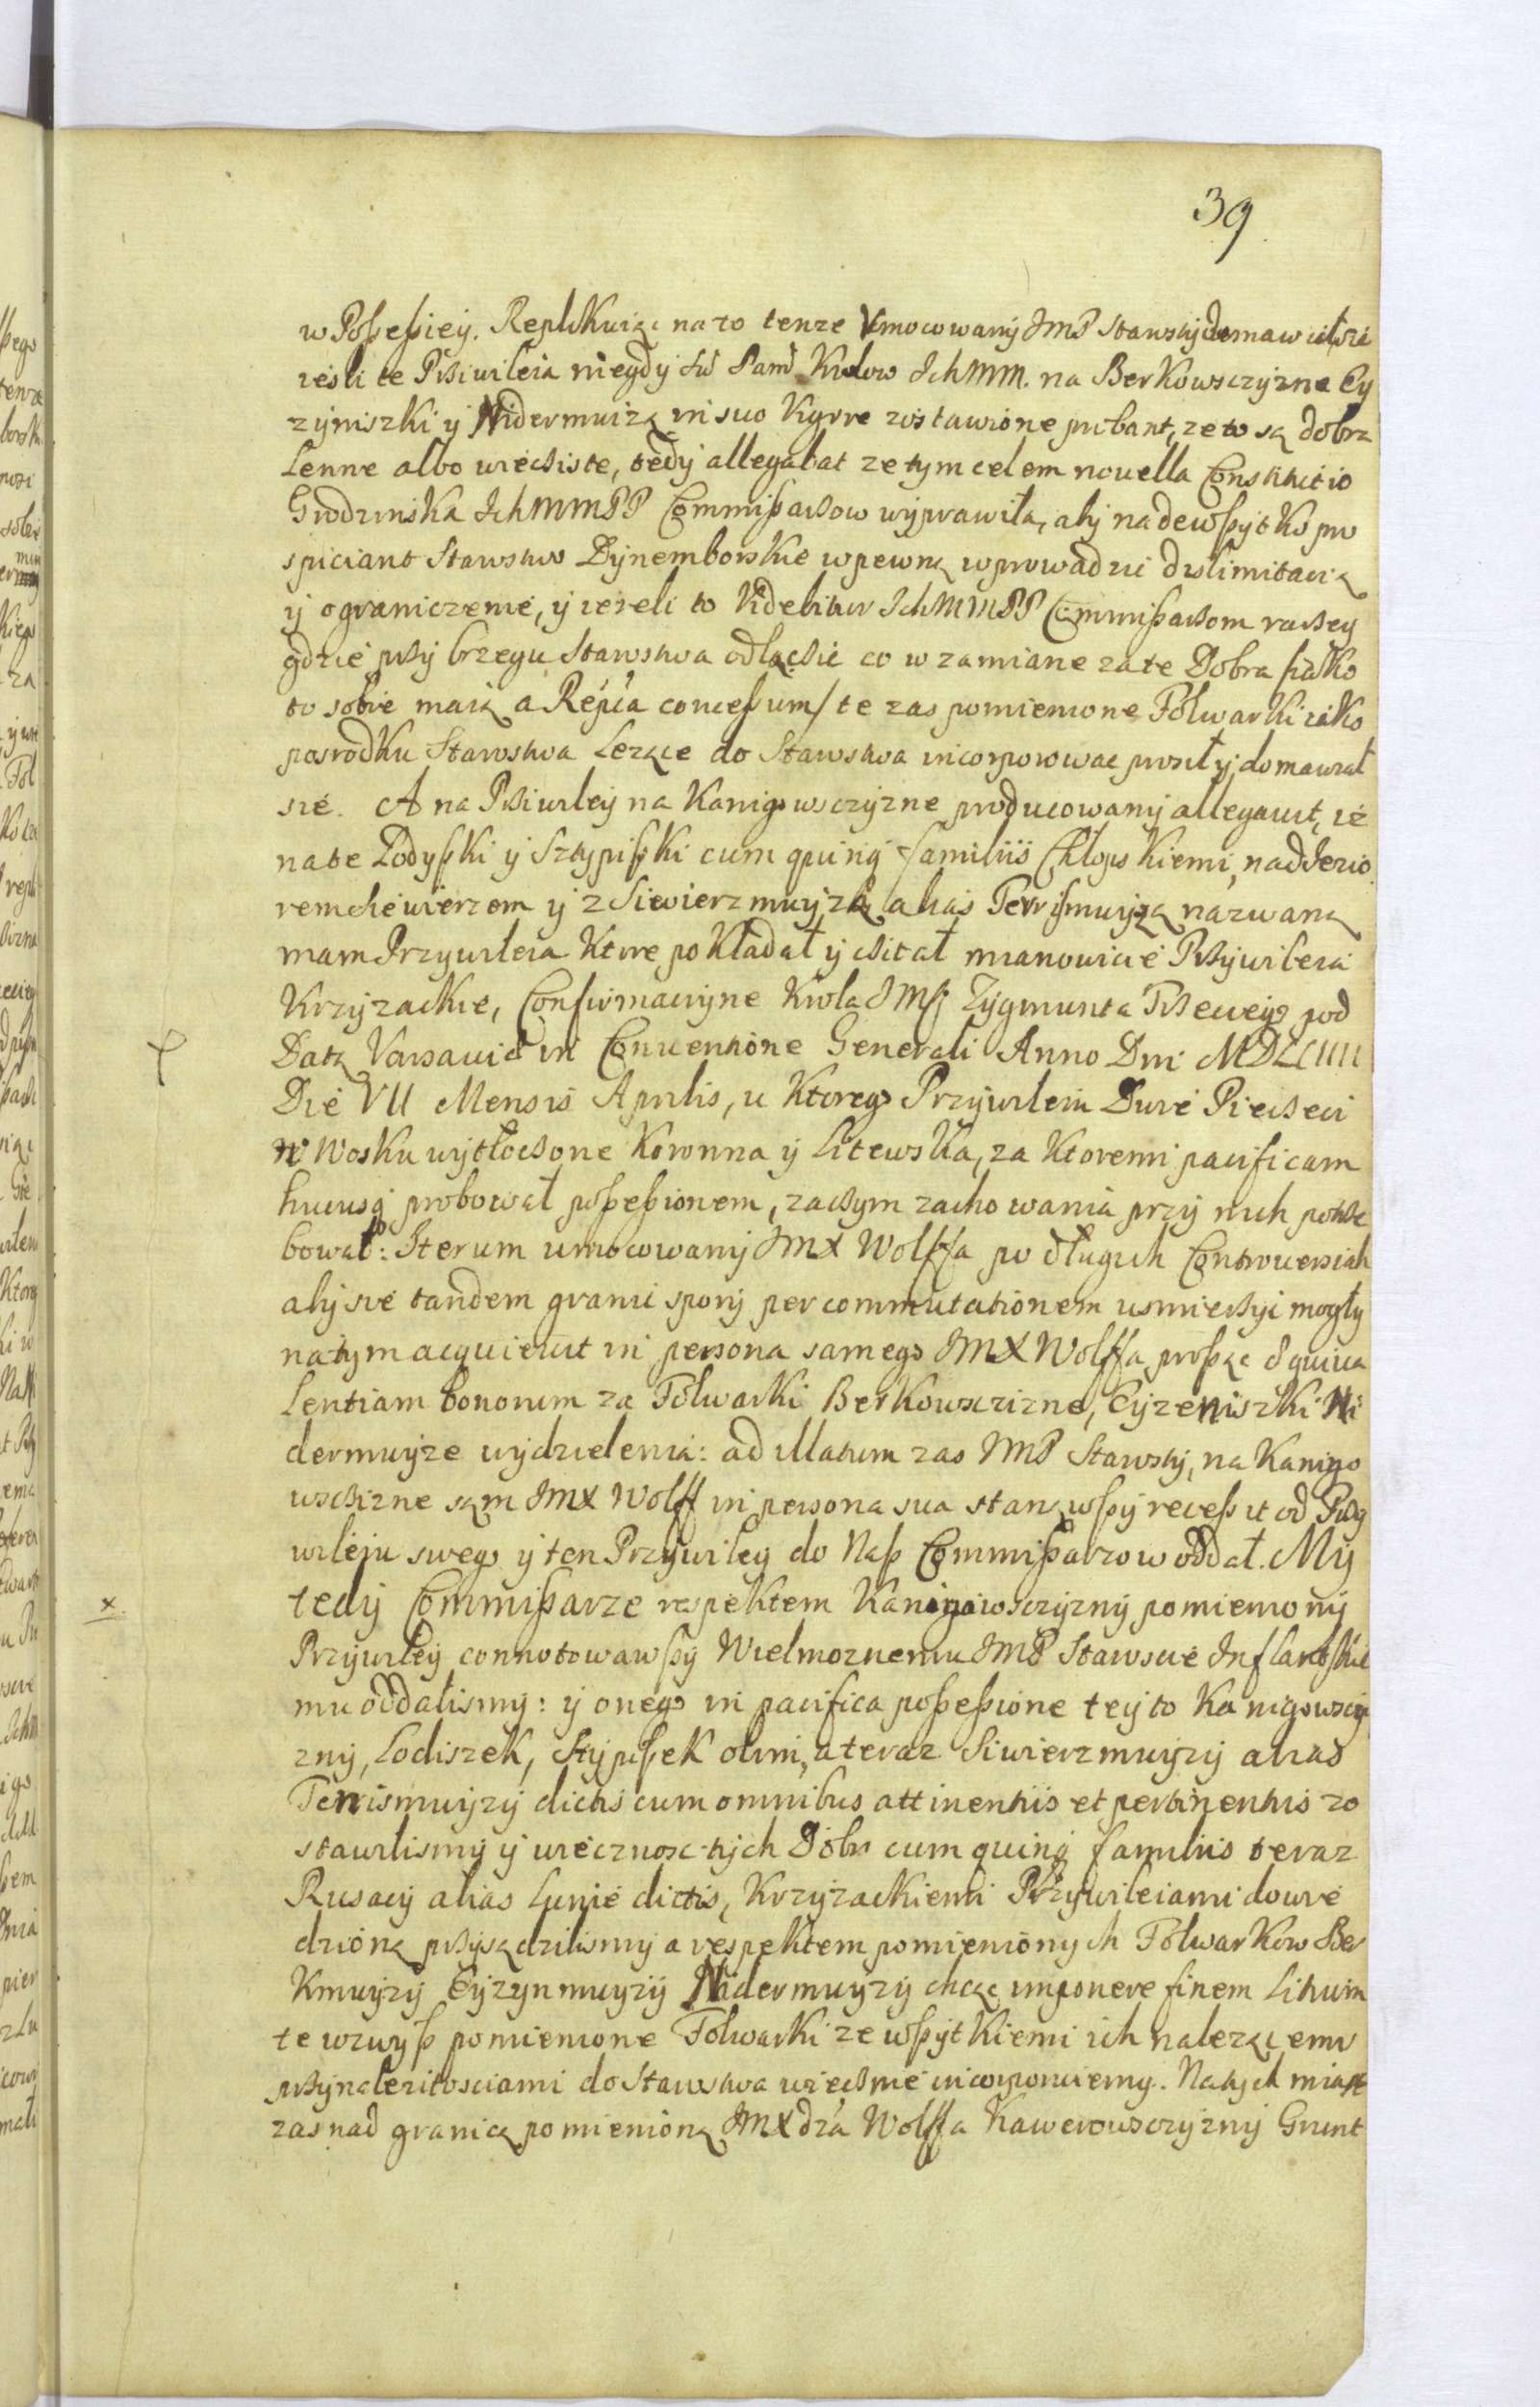 39
w Poßeßiey. Replikuiąc na to tenze Vmocowany JmP Starosty domawiał sie
iesli te Prziwileia niegdy Pam Krolow Ichmm. na Berkowsczyzne Ey
zyniszki y Nidermuizą in suo Vigore zostawione probant, ze to są dobra
Lenne albo wieczyste, tedy allegabat ze tym celem nouella Constitutio
Grodzinska IchmmPP Commißarzow wyprawiła, aby nadewßytko pro
spiciant Starostwo Dynemborskie w pewną wprowadzić dislimitacią
y ograniczenie, y iezeli to Videbitur IchMMPP Commißarzom raczey
gdzie przy brzegu Starostwa odłączić co w zamiane za te Dobra
to sobie maią a Repca conceßum/ te zas pomienione Folwarki iako
posrodku Starostwa Lezące do Starostwa incorporowac prosił y domawiał
sie. A na Prziwiley na Kanigowsczyzne producowany allegauit, iz
na te Lodyßki y Sztypißki cum quinq familiis Chłopskiemi, nad Jezio
rem Siewierzem y z Siewierzmuyzą alias Terrismuyzą nazwaną
mam Przywileia Ktore pokładał y czitał mianowicie Przywileia
Krzyzackie, Confirmacyine Krola JMsci Zygmunta Trzeciego pod
Datą Varsauiae in Conuentione Generali Anno Dni MDLCIIII
Die VII Mensis Aprilis, u Ktorego Przywileiu Dwie Pieczeci
w Wosku wytłoczone Koronna y Litewska, za Ktoremi pacificam
hucusq probował poßeßionem, zaczym zachowania przy nich potrze
bował: Iterum umocowany JmX Wolffa po długich Controuersiah
aby sie tandem granic spory per commutationem usmierzyć mogły
na tym acquieuit in persona samego JmX Wolffa proßąc Equiua
Lentiam bonorum za Folwarki Berkowsczizne, Eyzeniszki Ni
dermuyze wydzielenia: ad illatum zas JmP Starosty, na Kanigo
wsczizne sąm JmX Wolff in persona sua stanąwßy receßit od Przy
wileju swego y ten Przywiley do Naß Commißarzow oddał. My
tedy Commißarze respektem Kanigowsczyzny pomieniony
Przywiley connotowawßy Wielmoznemu JmP Staroscie Inflantskie
mu oddalismy: y onego in pacifica poßeßione tey to Kanigowsczy
zny, Lodiszek, Stypißek olim, a teraz Siwierzmuyzy alias
Terrismuyzy dictis cum omnibus attinentiis et pertinentiis zo
stawilismy y wiecznosc tych Dobr cum quinq familiis teraz
Rusacy alias Lunie dictis, Krzyzackiemi Przywileiami dowie
dzioną przysądzilismy a respektem pomienionych Folwarkow Ber
Kmuyzy Eyzynmuyzy Nidermuyzy chcąc imponere finem Litium
te wzwyß pomienione Folwarki ze wßytkiemi ich nalezącemi
przynalezitosciami do Starostwa wiecznie incorporuiemy. Natych miast
zas nad granicą pomienioną JmXdza Wolffa Kawerowsczyzny Grunt